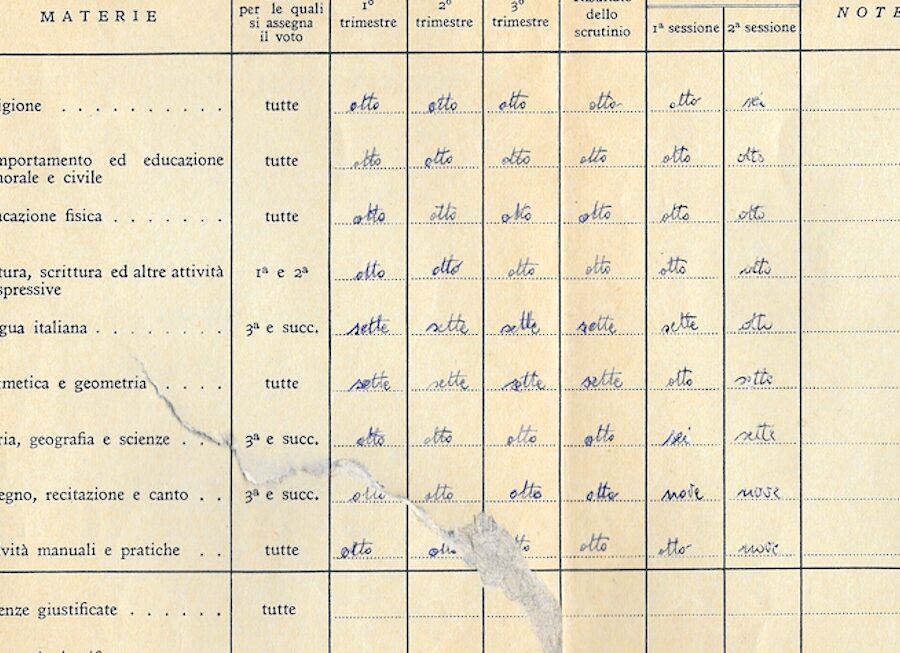 per le quali 1º 2º 3º
MATERIE si assegna trimestre trimestre trimestre dello 1ª sessione 2ª sessione NOTE
il voto scrutinio
igione . . . . . . . . . . tutte otto otto otto otto otto sei
mportamento ed educazione tutte otto otto otto otto otto otto
morale e civile
cazione fisica . . . . . . . tutte otto otto otto otto otto otto
tura, scrittura ed altre attività 1ª e 2ª otto otto otto otto otto otto
spressive
gua italiana . . . . . . . . 3ª e succ. sette sette sette sette sette otto
metica e geometria . . . . tutte sette sette sette sette otto sette
ria, geografia e scienze . . . 3ª e succ. otto otto otto otto sei sette
egno, recitazione e canto . . 3ª e succ. otto otto otto otto nove nove
vità manuali e pratiche . . tutte otto otto nove
enze giustificate . . . . . . tutte